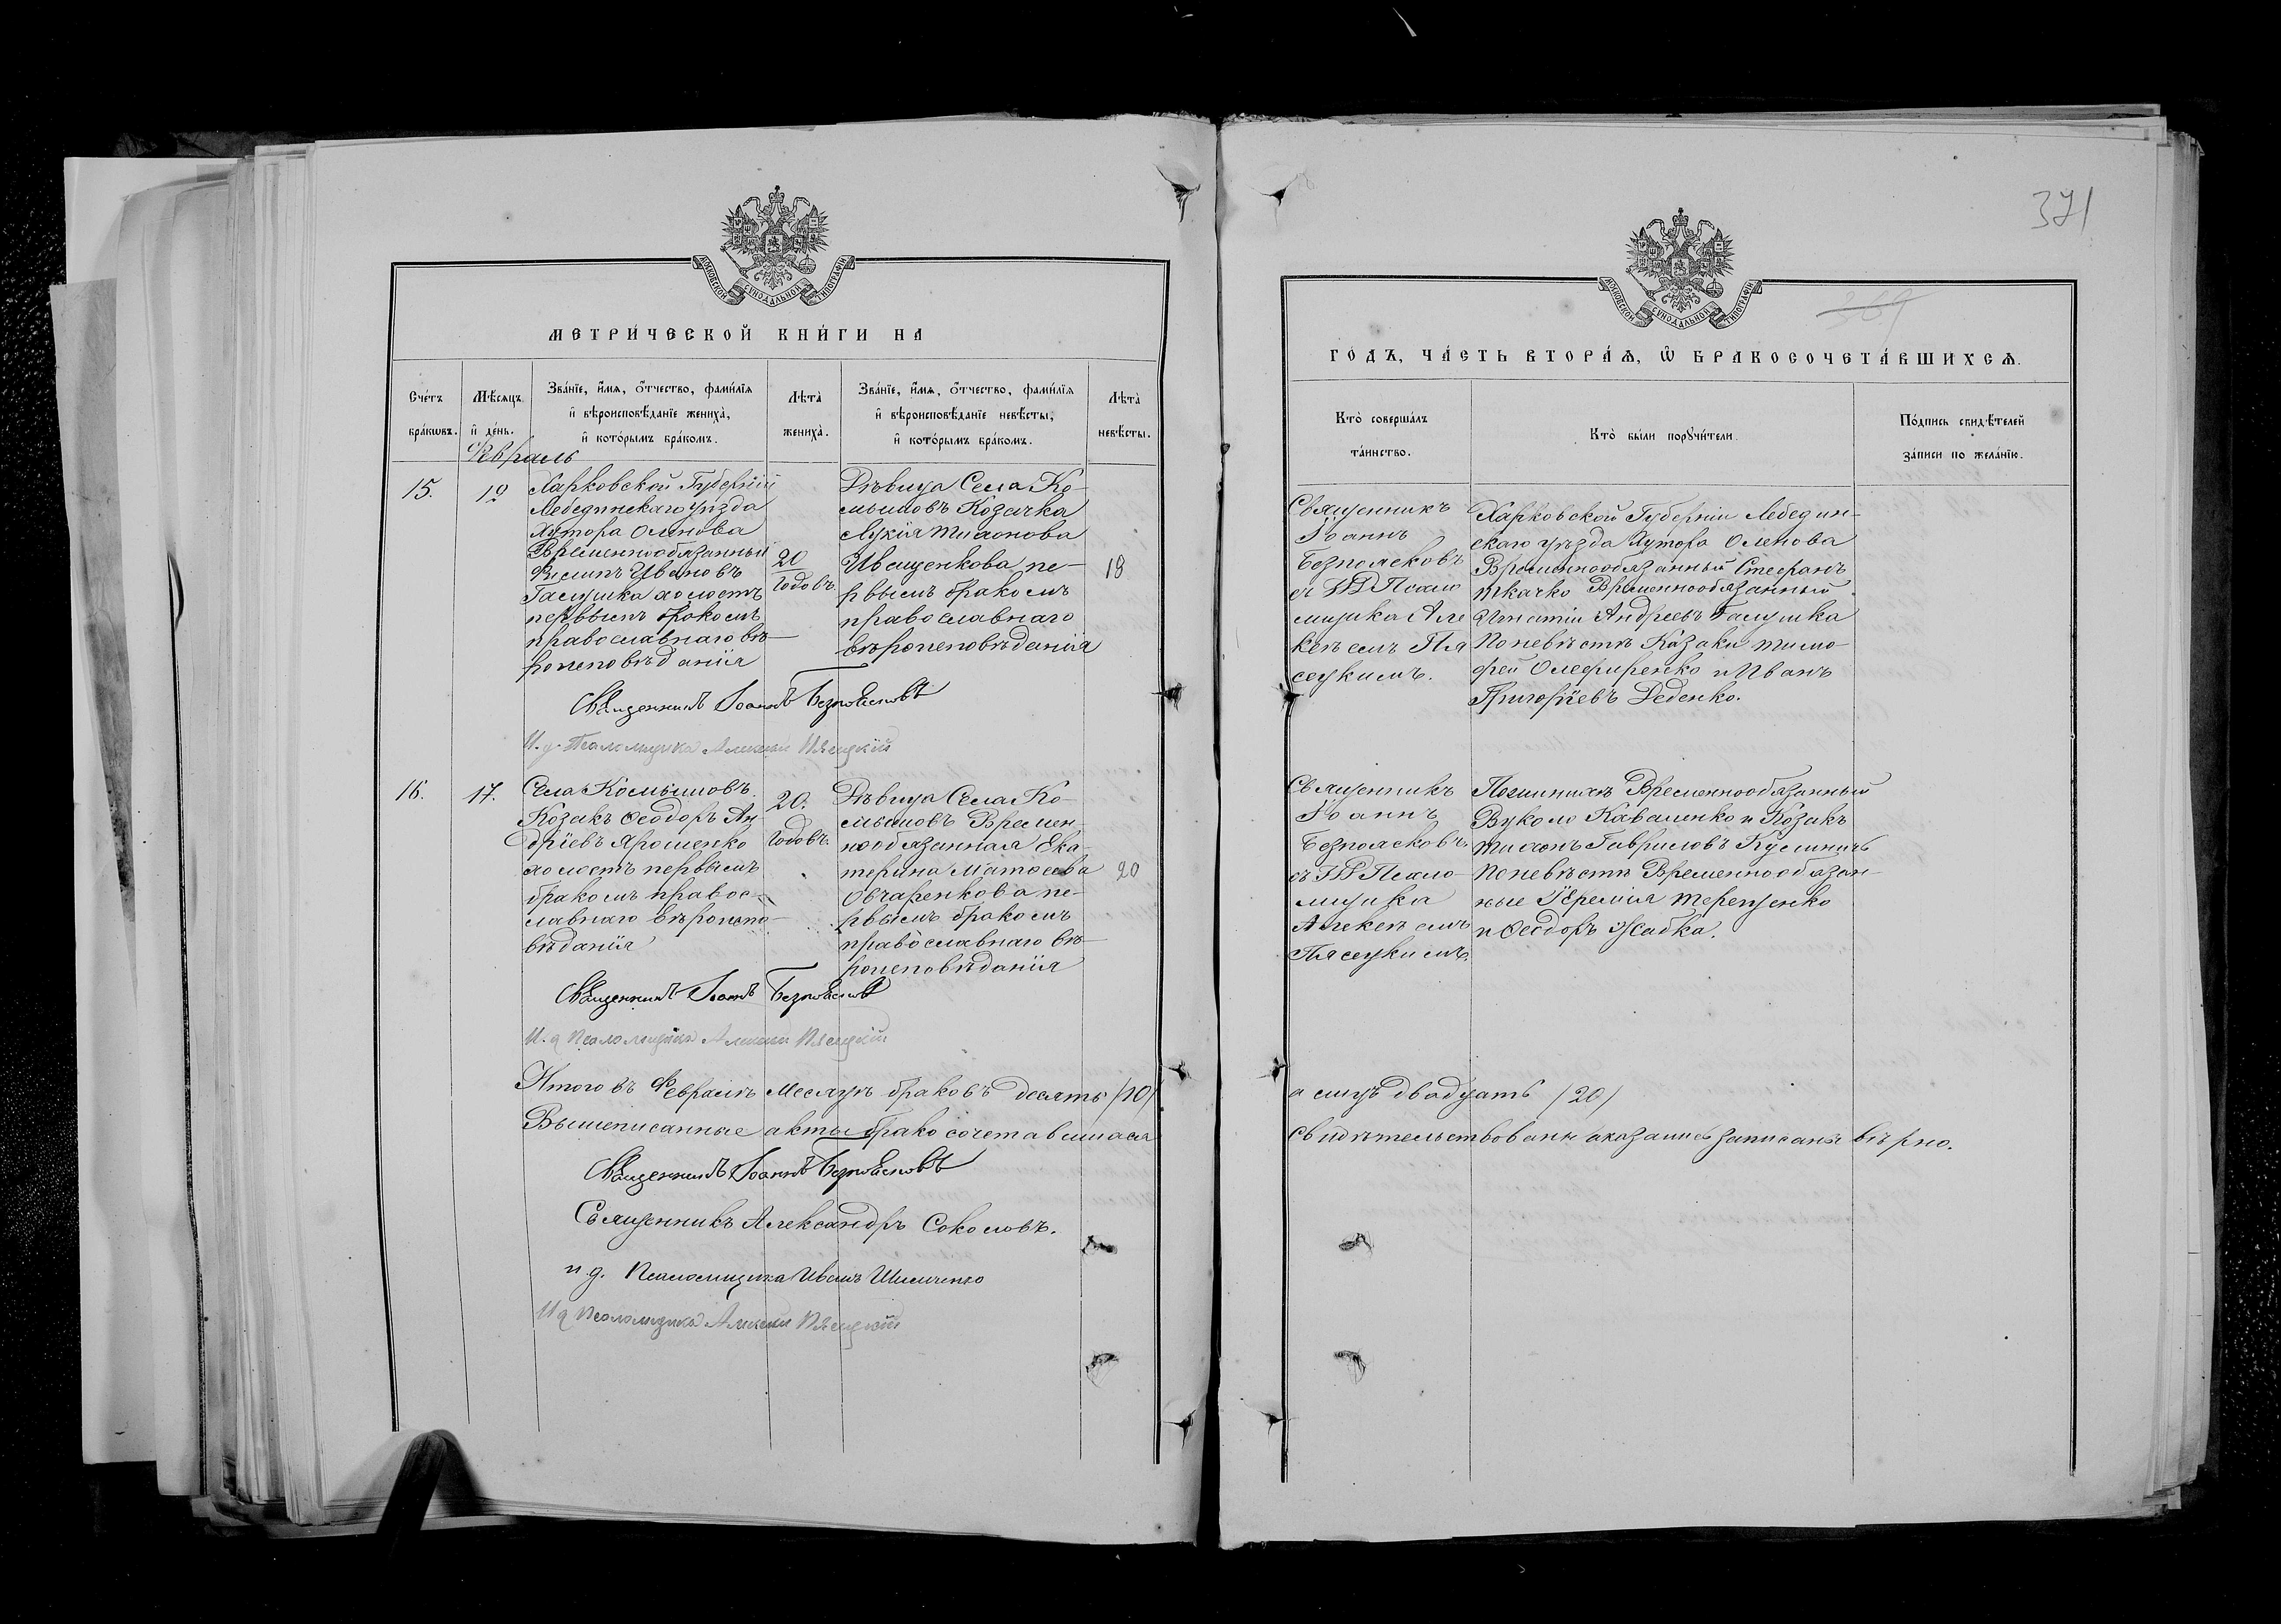 371
369
МОСКОВСКОЙ СѴНОДАЛЬНОЙ ТИПОГРАФІИ
МОСКОВСКОЙ СѴНОДАЛЬНОЙ ТИПОГРАФІИ
МЕТРИ́ЧЕСКОЙ КНИ́ГИ НА
ГО́ДЪ, ЧА́СТЬ ВТОРА́Ѧ, Ѽ БРАКОСОЧЕТА́ВШИХСѦ.
Сче́тъ
бра́кѡвъ.
Мѣ́сяцъ
и҆ де́нь.
Зва́нїе, и҆́мѧ, ѻ҆́тчество, фами́лїѧ
и҆ вѣроисповѣ́данїе жениха̀,
и҆ кото́рымъ бра́комъ.
Лѣта̀
жениха̀.
Зва́нїе, и҆́мѧ, ѻ҆́тчество, фами́лїѧ
и҆ вѣроисповѣ́данїе невѣ́сты,
и҆ кото́рымъ бра́комъ.
Лѣта̀
невѣ́сты.
Кто̀ соверша́лъ
та́инство.
Кто̀ бы́ли порꙋчи́тели.
По́дпись свидѣ́телей
за́писи по жела́нїю.
Февраль
15.
Харковской Губерніи
Лебединскаго уѣзда
Хутора Оленова
Временнообязанный
Ивановъ
Галушка холостъ
первымъ бракомъ
православнаго вѣ-
роисповѣданія
20
годовъ
Дѣвица Села Ко-
мышовъ Козачка
Лукія Тихонова
Иващенкова пе-
рвымъ бракомъ
православнаго
вѣроисповѣданія
18
Священникъ
Іоаннъ
Безпоясковъ
съ ИД Псало
мщика Але
ксѣемъ Пя
сецкимъ.
Харковской Губерніи Лебедин-
скаго уѣзда Хутора Оленова
Временнообязанный Стефанъ
Ткачко Временнообязанный
Игнатій Андреевъ Галушка
По невѣстѣ Козаки Тимо-
фей Олефиренко и Иванъ
Григоріевъ Деденко.
Священникъ Іоаннъ Безпоясковъ
И. д. Псаломщика Алексѣй Пясецкій
16.
17.
Села Комышовъ
Козакъ Ѳеодоръ Ан
дріевъ Ярошенко
холостъ первымъ
бракомъ правос-
лавнаго вѣроиспо-
вѣданія
20.
годовъ.
Дѣвица Села Ко-
мышовъ Времен-
нообязанная Ека-
терина Матѳеева
Овчаренкова пе-
рвымъ бракомъ
православнаго вѣ-
роисповѣданія
20
Священникъ
Іоаннъ
Безпоясковъ
съ ИД Псало-
мщика
Алексѣемъ
Пясецкимъ.
По женихѣ Временнообязанный
Вуколъ Коваленко и Козакъ
Тихонъ Гавриловъ
По невѣстѣ Временнообязан-
ные Іеремія Терещенко
и Ѳеодоръ Жабка.
Священникъ Іоаннъ Безпоясковъ
И. д. Псаломщика Алексѣй Пясецкій
Итого въ Февралѣ месяцѣ браковъ десять /10/
а лицъ двадцать /20/
Вышеписанные акты о бракосочетавшихся
свидѣтельствованы и оказались записаны вѣрно.
Священникъ Іоаннъ Безпоясковъ
Священникъ Александръ Соколовъ.
и. д. Псаломщика Иванъ
И д Псаломщика Алексѣй Пясецкій